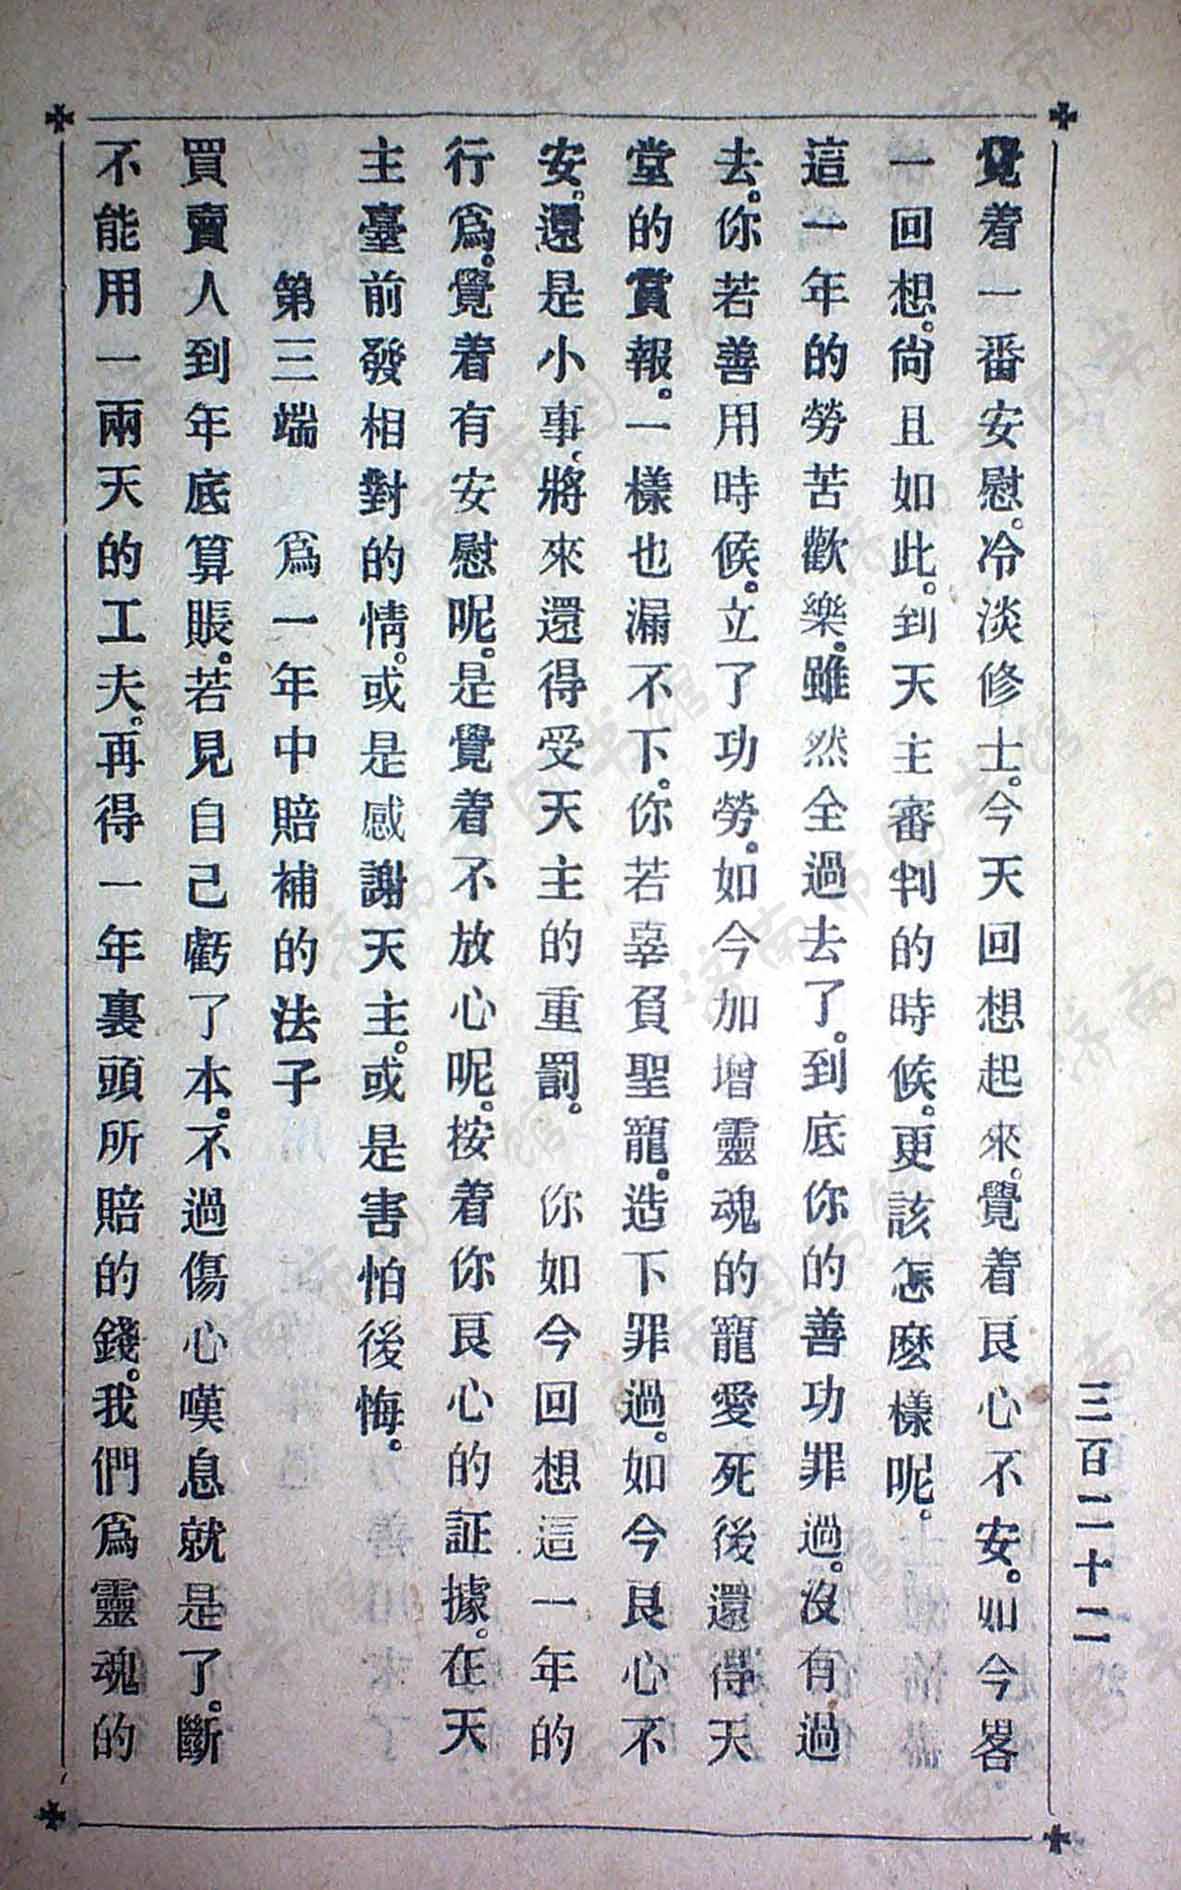 三百二十二
覺着一番安慰。冷淡修士。今天回想起來。覺着良心不安。如今畧
一回想。尙且如此。到天主審判的時候。更該怎麽樣呢。
這一年的勞苦歡樂。雖然全過去了。到底你的善功罪過。沒有過
去。你若善用時候。立了功勞。如今加增靈魂的寵愛死後還得天
堂的賞報。一樣也漏不下。你若辜負聖寵。造下罪過。如今良心不
安。還是小事、將來還得受天主的重罰。　你如今回想這一年的
行爲。覺着有安慰呢。是覺着不放心呢。按着你良心的証據。在天
主臺前發相對的情。或是感謝天主。或是害怕後悔。
第三端　爲一年中賠補的法子
買賣人到年底算賬。若見自己虧了本。不過傷心嘆息就是了。斷
不能用一兩天的工夫。再得一年裏頭所賠的錢。我們爲靈魂的